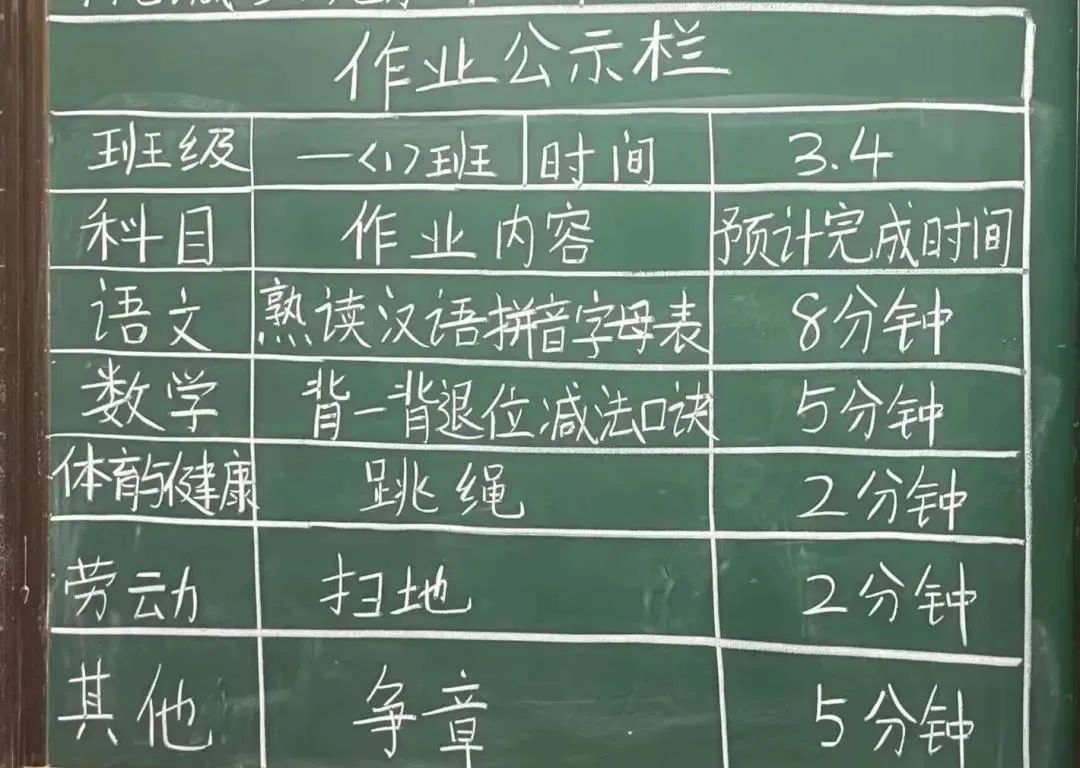 作业公示栏
班级 一〈1〉班 时间 3.4
科目 作业内容 预计完成时间
语文 熟读汉语拼音字母表 8分钟
数学 背一背退位减法口诀 5分钟
体育与健康 跳绳 2分钟
劳动 扫地 2分钟
其他 争章 5分钟